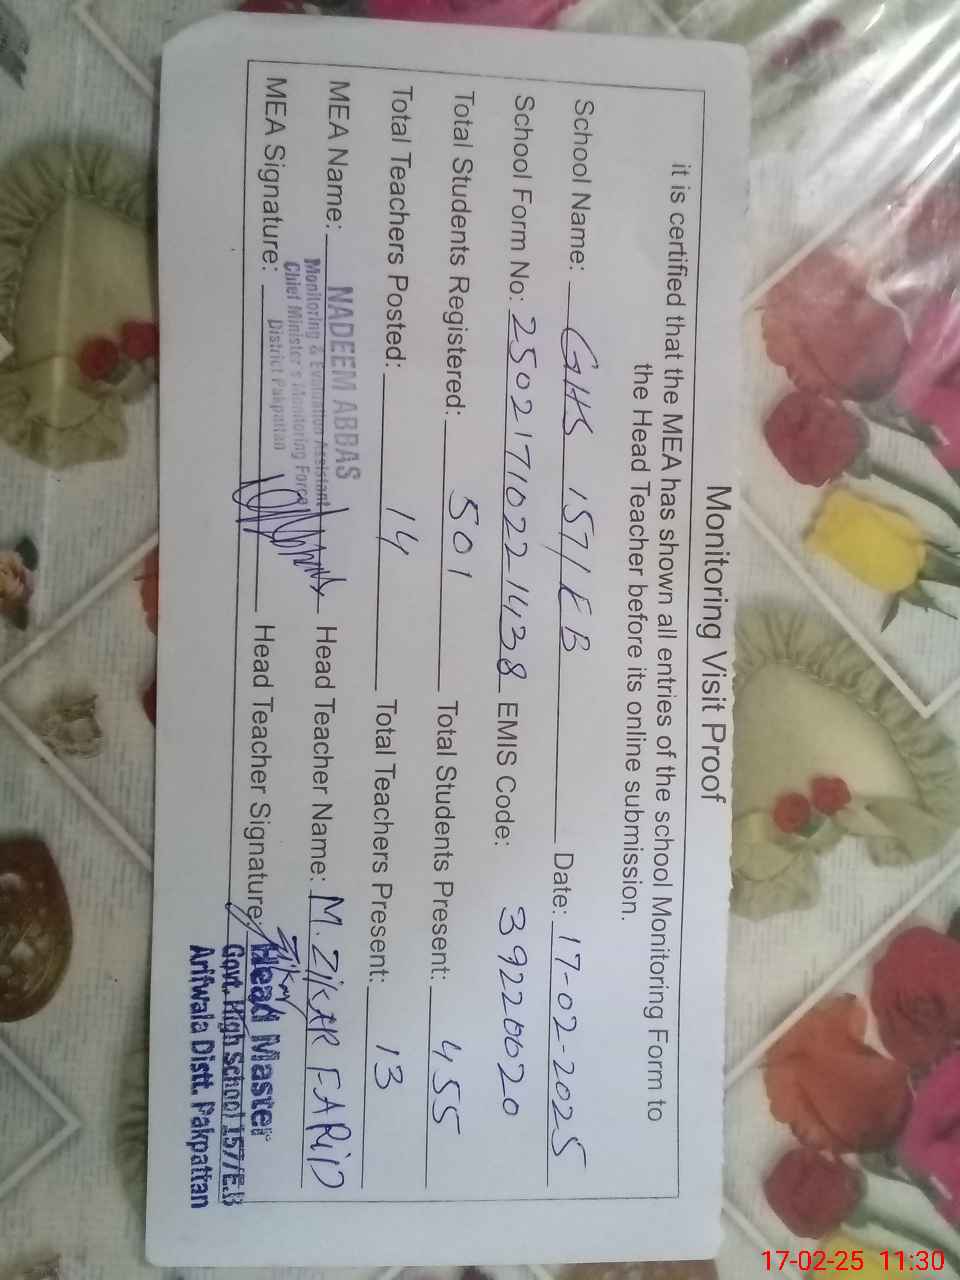 Monitoring Visit Proof
it is certified that the MEA has shown all entries of the school Monitoring Form to
the Head Teacher before its online submission.
School Name: GHS 157/EB Date: 17-02-2025
School Form No: 2502171022 1438 EMIS Code: 39220020
Total Students Registered: 501 Total Students Present: 455
Total Teachers Posted: 14 Total Teachers Present: 13
MEA Name: NADEEM ABBAS Head Teacher Name: M. ZIKAR FARID
Monitoring & Evaluation Assistant
Chief Minister's Monitoring Force
District Pakpattan
MEA Signature: Head Teacher Signature:
Head Master
Govt. High School 157/E.B
Arifwala Distt. Pakpattan
17-02-25 11:30